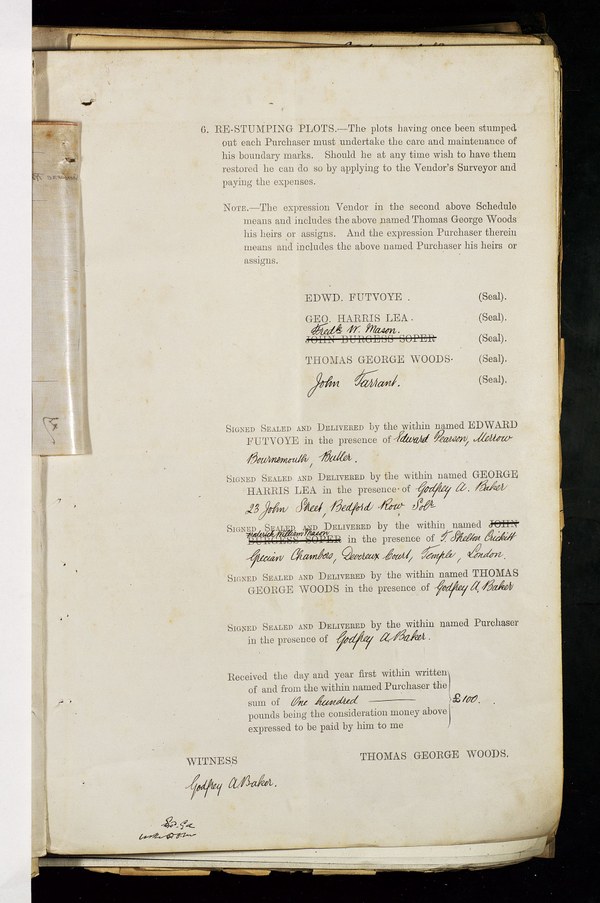 6. RE-STUMPING PLOTS.—The plots having once been stumped
out each Purchaser must undertake the care and maintenance of
his boundary marks. Should he at any time wish to have them
restored he can do so by applying to the Vendor's Surveyor and
paying the expenses.
NOTE.—The expression Vendor in the second above Schedule
means and includes the above named Thomas George Woods
his heirs or assigns. And the expression Purchaser therein
means and includes the above named Purchaser his heirs or
assigns.
EDWD. FUTVOYE. (Seal).
GEO. HARRIS LEA. (Seal).
Fredk W. Mason.
JOHN BURGESS SOPER (Seal).
THOMAS GEORGE WOODS. (Seal).
John Tarrant. (Seal).
SIGNED SEALED AND DELIVERED by the within named EDWARD
FUTVOYE in the presence of Edward Pearson, Merrow
Bournemouth, Butler.
SIGNED SEALED AND DELIVERED by the within named GEORGE
HARRIS LEA in the presence of Godfrey A. Baker
23 John Street, Bedford Row Solr
SIGNED SEALED AND DELIVERED by the within named JOHN
Frederick William Mason
BURGESS SOPER in the presence of T. Shelton Crickitt
Grecian Chambers, Devereux Court, Temple, London.
SIGNED SEALED AND DELIVERED by the within named THOMAS
GEORGE WOODS in the presence of Godfrey A. Baker
SIGNED SEALED AND DELIVERED by the within named Purchaser
in the presence of Godfrey A Baker.
Received the day and year first within written
of and from the within named Purchaser the
sum of One hundred £100.
pounds being the consideration money above
expressed to be paid by him to me
WITNESS THOMAS GEORGE WOODS.
Godfrey A Baker.